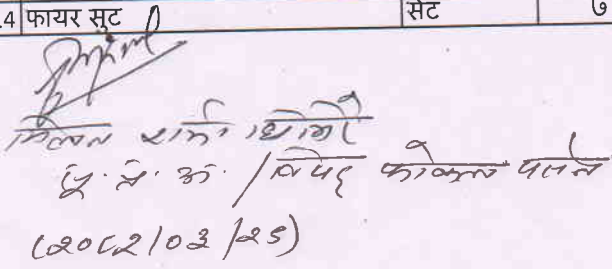 .4 फायर सुट सेट ७
मिलन शर्मा घिमिरे
प्र. स. अ. / विपद् फोकल पर्सन
(२०८२/०३/२९)